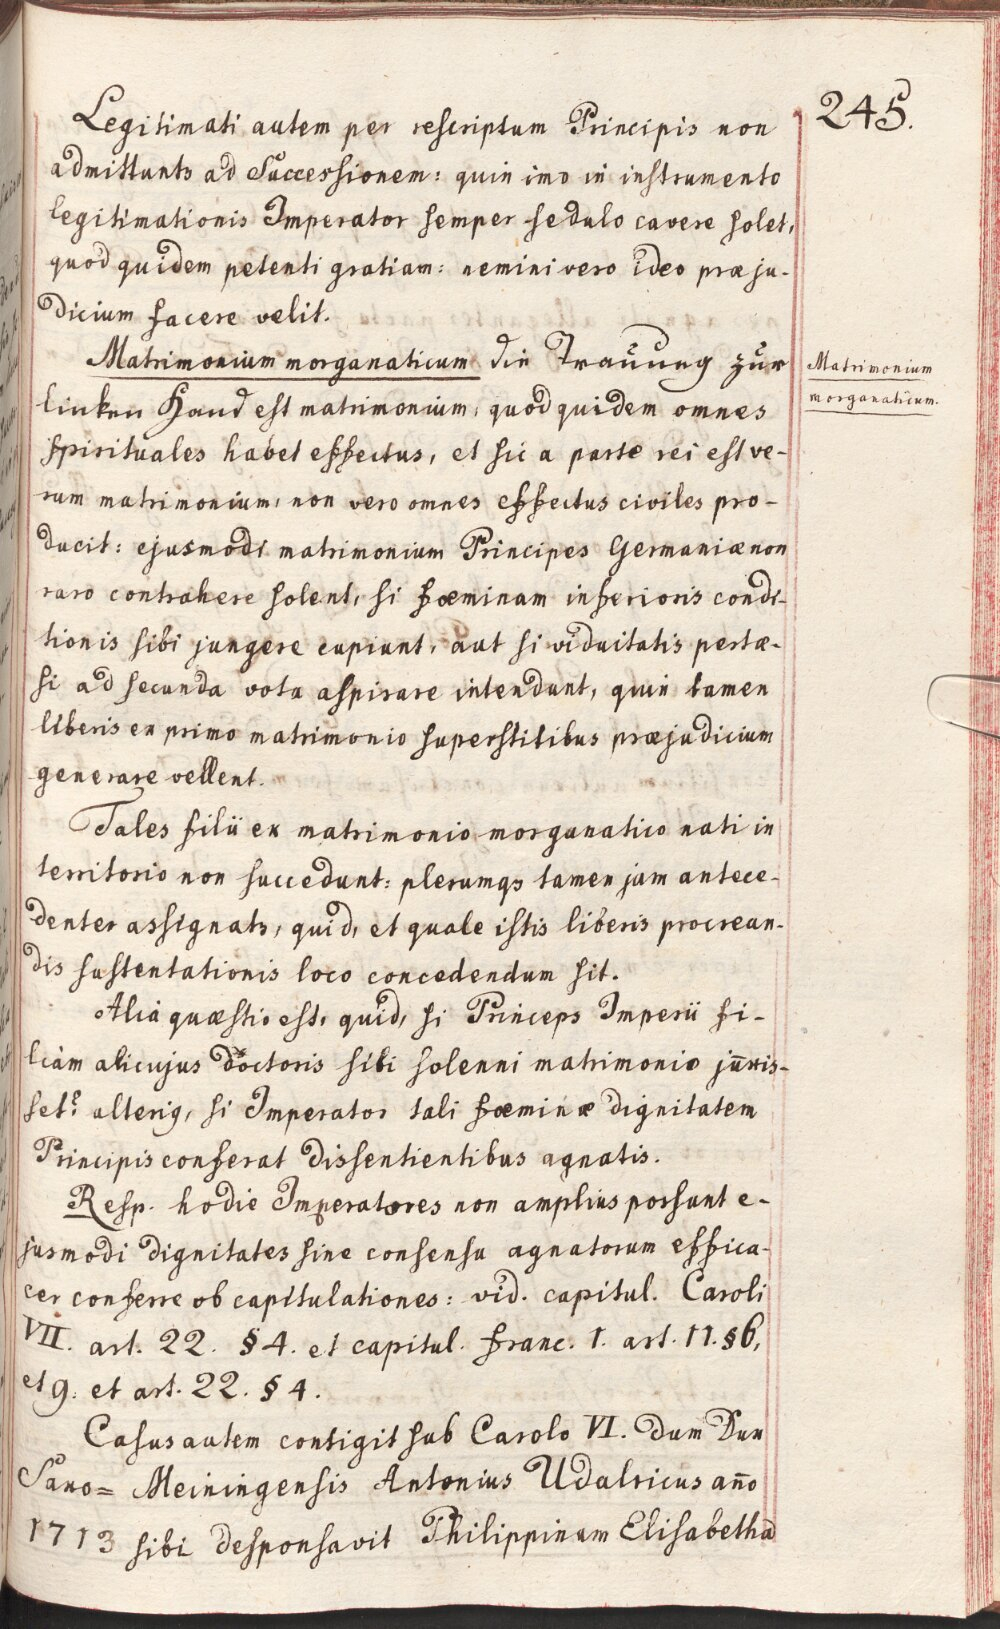 245.
Legitimati autem per rescriptum Principis non
admittunts ad Successionem: quin imo in instrumento
legitimationis Imperator semper sedulo cavere solet,
quod quidem petenti gratiam: nemini vero ideo præju-
dicium facere velit.
Matrimonium morganaticum die Trauung zur
Matrimonium
morganaticum.
linken Hand est matrimonium, quod quidem omnes
spirituales habet effectus, et sic a parte rei est ve-
rum matrimonium, non vero omnes effectus civiles pro-
ducit: ejusmodi matrimonium Principes Germaniæ non
raro contrahere solent, si fœminam inferioris condi-
tionis sibi jungere cupiunt, aut si viduitatis pertæ-
si ad secunda vota aspirare intendunt, quin tamen
liberis ex primo matrimonio superstitibus præjudicium
generare vellent.
Tales filii ex matrimonio morganatico nati in
territorio non succedunt: plerumqs tamen jam antece-
denter assignats, quid, et quale istis liberis procrean-
dis sustentationis loco concedendum sit.
Alia quæstio est, quid, si Princeps Imperii fi-
liam alicujus doctoris sibi solenni matrimonio
set? si Imperator tali fœminæ dignitatem
Principis conferat dissentientibus agnatis.
Resp. hodie Imperatores non amplius possunt e-
jusmodi dignitates sine consensu agnatorum effica-
cer conferre ob capitulationes: vid. capitul. Caroli
VII. art. 22. § 4. et capitul. franc. 1. art. 11. § 6,
et 9. et art. 22. § 4.
Casus autem contigit sub Carolo VI. dum Dux
Saxo= Meiningensis Antonius Udalricus año
1713 sibi desponsavit Philippinam Elisabetha